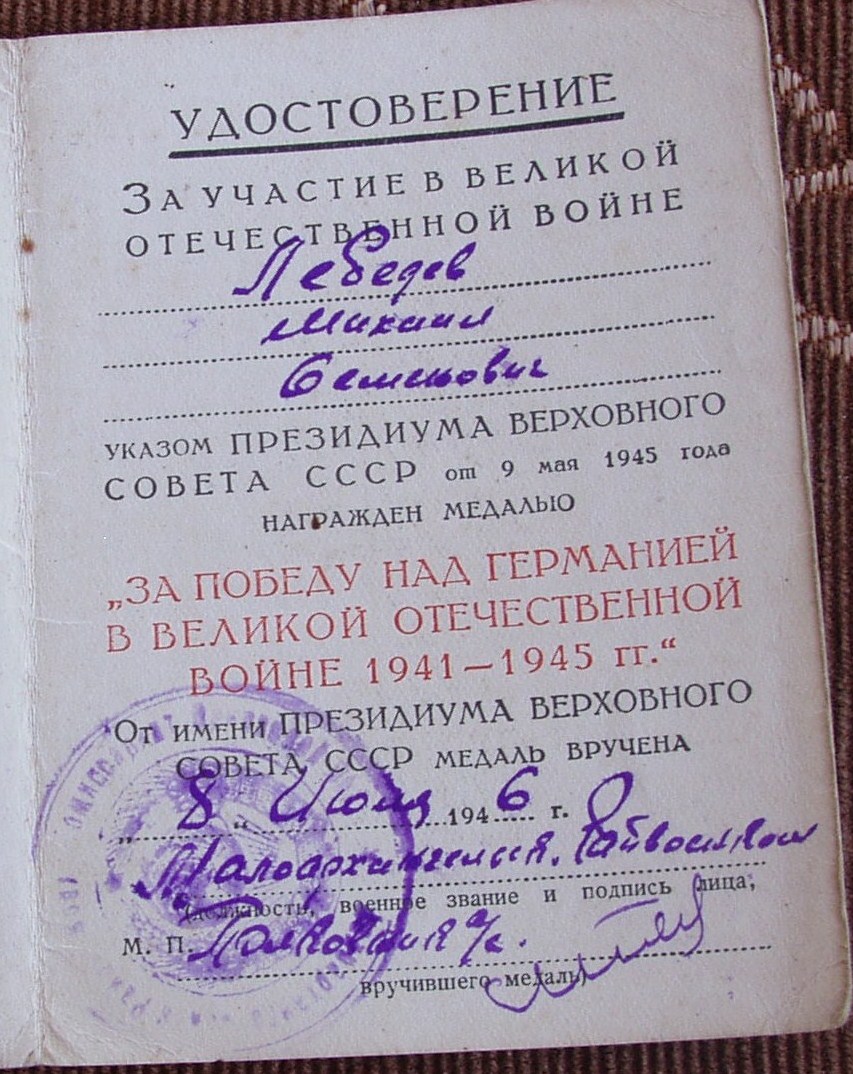 УДОСТОВЕРЕНИЕ
ЗА УЧАСТИЕ В ВЕЛИКОЙ
ОТЕЧЕСТВЕННОЙ ВОЙНЕ
Лебедев
Михаил
Семенович
УКАЗОМ ПРЕЗИДИУМА ВЕРХОВНОГО
СОВЕТА СССР от 9 мая 1945 года
НАГРАЖДЕН МЕДАЛЬЮ
„ЗА ПОБЕДУ НАД ГЕРМАНИЕЙ
В ВЕЛИКОЙ ОТЕЧЕСТВЕННОЙ
ВОЙНЕ 1941—1945 гг.“
От ИМЕНИ ПРЕЗИДИУМА ВЕРХОВНОГО
СОВЕТА СССР МЕДАЛЬ ВРУЧЕНА
„ 8 „ Июня 1946 г.
(должность, военное звание и подпись лица,
М. П.
вручившего медаль)